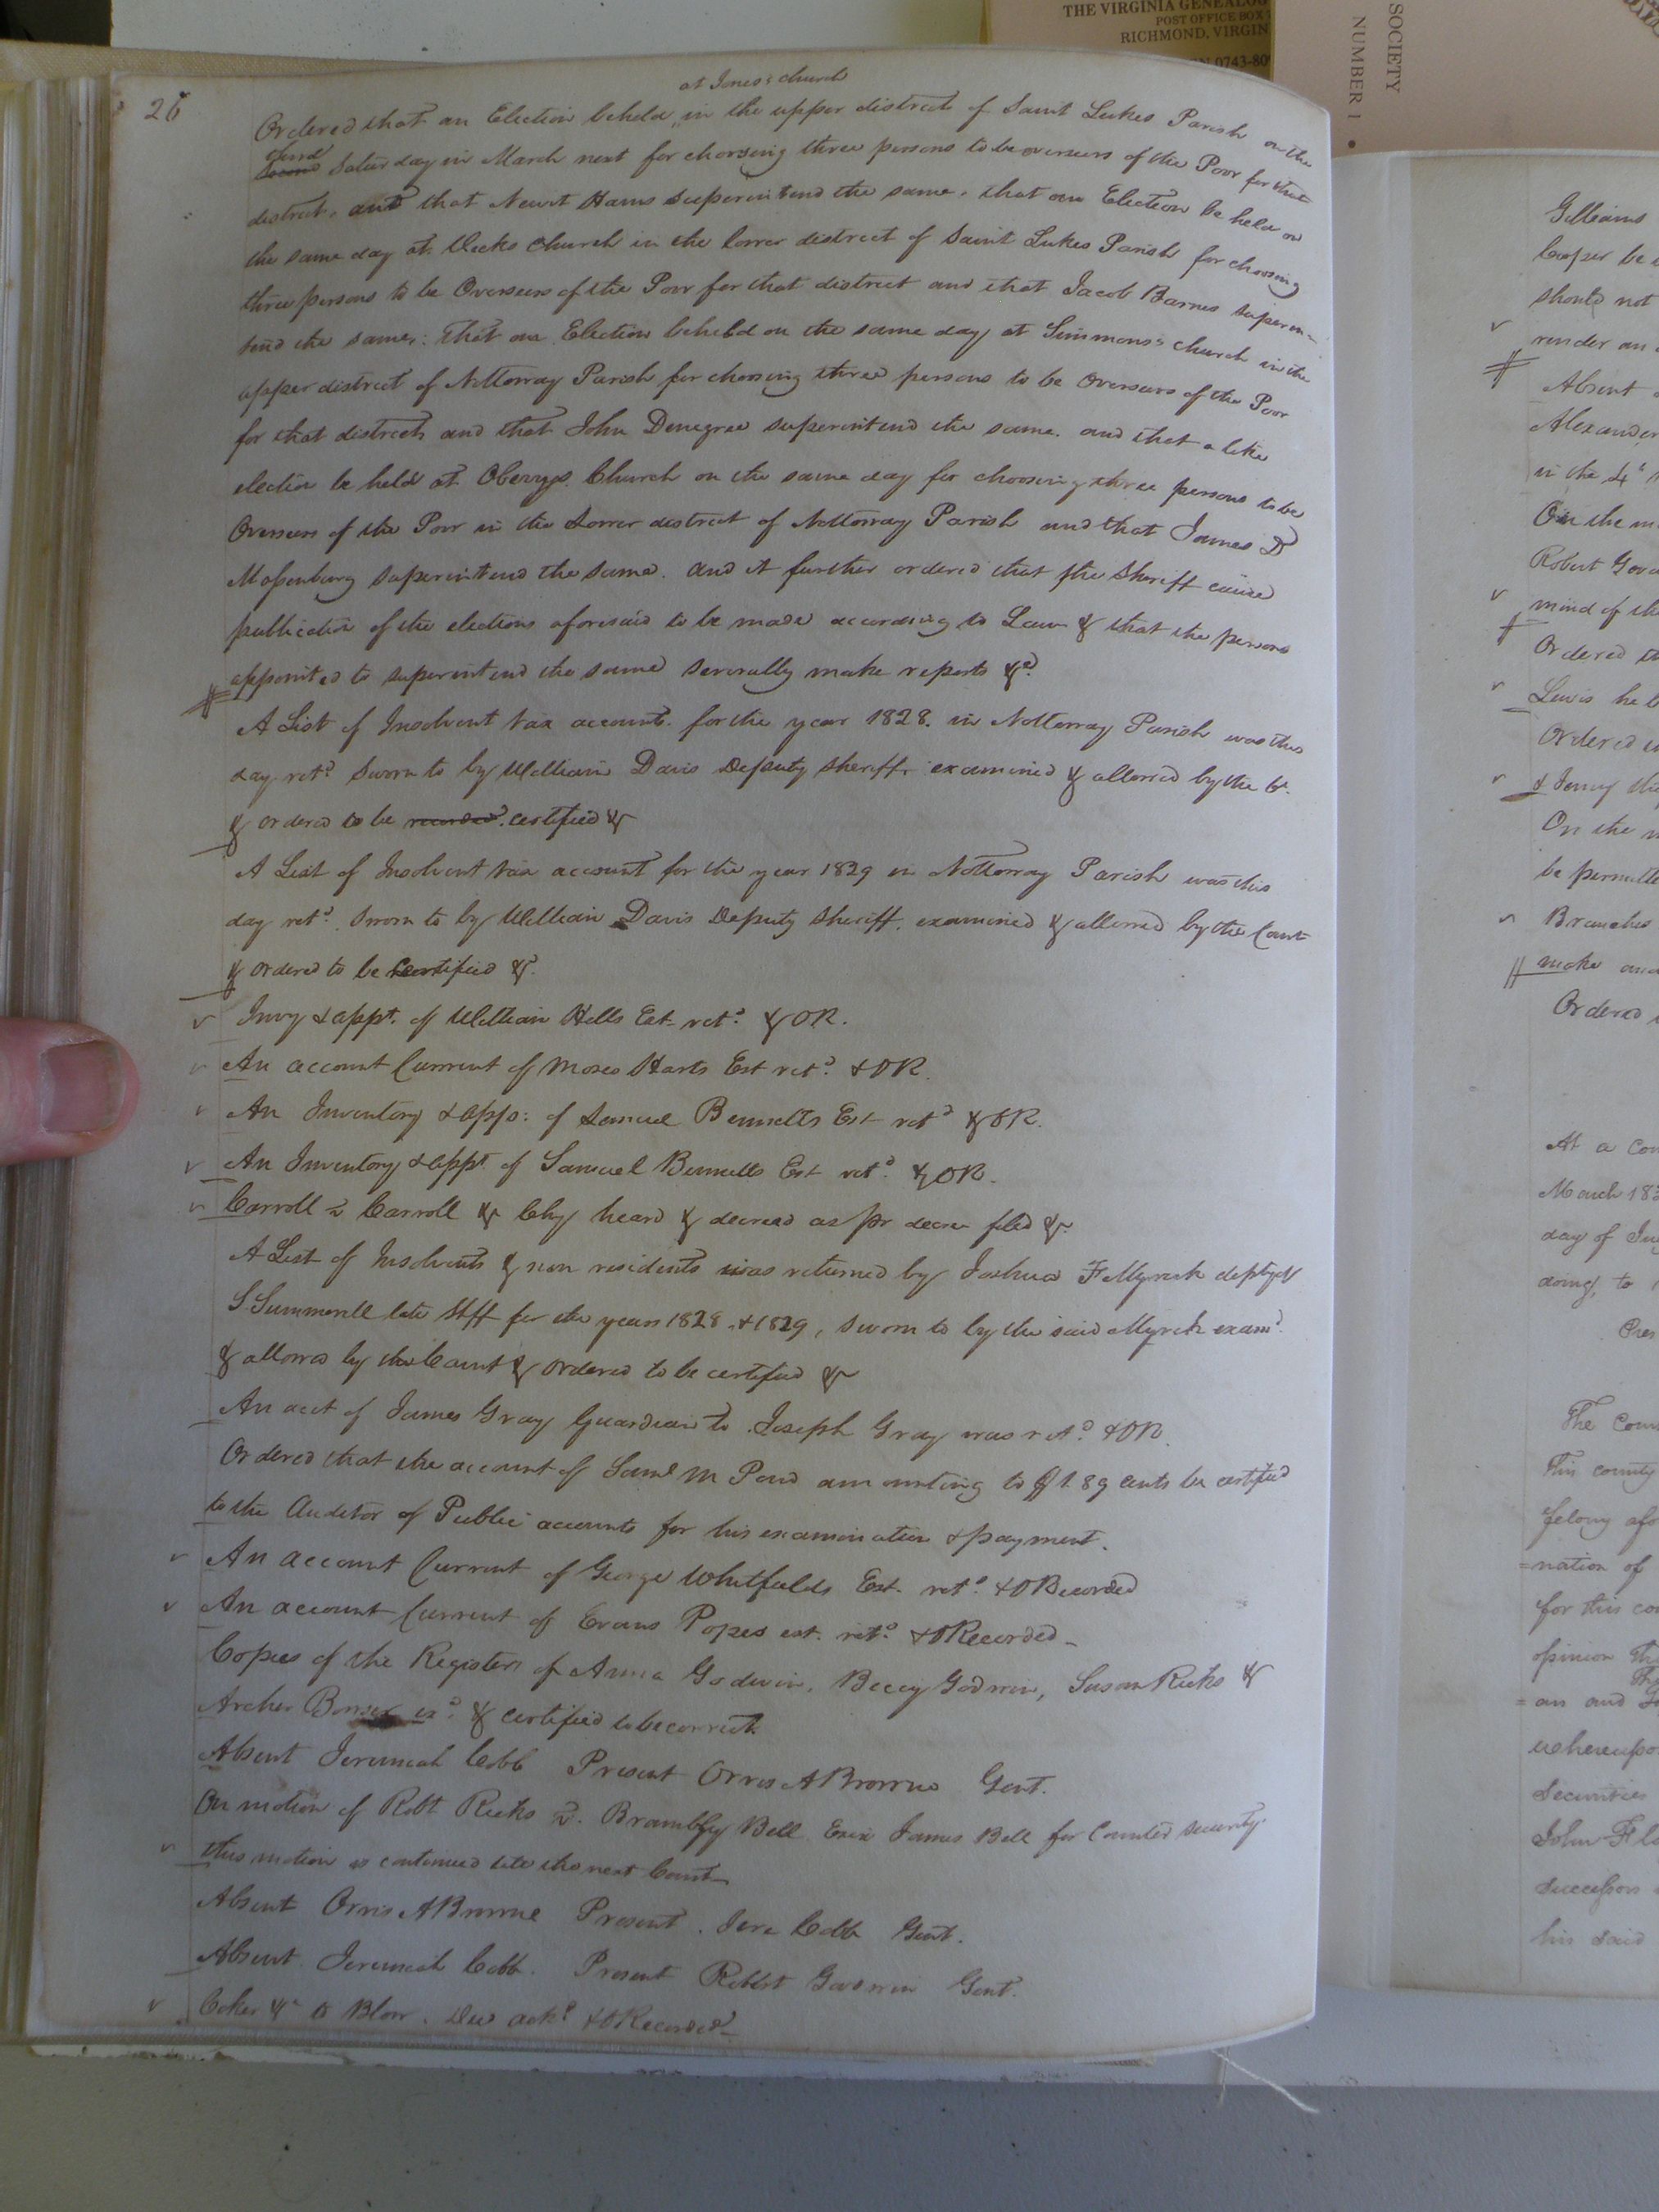 THE VIRGINIA GENEALOG
POST OFFICE BOX 7
RICHMOND, VIRGIN
N 0743-80
SOCIETY
NUMBER 1 •
26
at Jones's church
Ordered that an Election be held in the upper district of Saint Lukes Parish on the
third
Second Saturday in March next for choosing three persons to be overseers of the Poor for that
district, and that Newit Harris superintend the same, that an Election be held on
the same day at Vicks Church in the lower district of Saint Lukes Parish for choosing
three persons to be Overseers of the Poor for that district and that Jacob Barnes superin-
tend the same: that an Election be held on the same day at Simmons's church in the
upper district of Nottoway Parish for choosing three persons to be Overseers of the Poor
for that district and that John Denegree superintend the same. and that a like
election be held at Oberrys Church on the same day for choosing three persons to be
Overseers of the Poor in the Lower district of Nottoway Parish and that James D
Massenburg superintend the same. and it further ordered that the Sheriff cause
publication of the elections aforesaid to be made according to Law & that the persons
appointed to superintend the same severally make reports &c.
A List of Insolvent tax accounts for the year 1828. in Nottoway Parish was this
day retd. Sworn to by William Davis Deputy Sheriff examined & allowed by the Ct.
& ordered to be recorded. certified &c
A List of Insolvent tax account for the year 1829 in Nottoway Parish was this
day retd. Sworn to by William Davis Deputy Sheriff, examined & allowed by the Court
& ordered to be Certified &c.
Invy & appt. of William Hills Est retd. & OR.
An account Current of Moses Harts Est retd. & OR.
An Inventory & app: of Samuel Bennetts Est retd & OR.
An Inventory & appt of Samuel Bennetts Est retd. & OR.
Carroll vs Carroll &c Chy heard & decreed as pr decree filed &c.
A List of Insolvents & non residents was returned by Joshua F Myrick depty of
S. Summerell late Shff for the years 1828 & 1829, sworn to by the said Myrick examd.
& allowed by the Court & ordered to be certified &c
An acct of James Gray Guardian to Joseph Gray was retd. & OR.
Ordered that the account of Saml M Pond amounting to $1.89 cents be certified
to the Auditor of Public accounts for his examination & payment.
An account Current of George Whitfields Est. retd. & O Recorded
An account Current of Evans Popes est. retd. & O Recorded
Copies of the Registers of Anna Godwin, Beccy Godwin, Susan Ricks &
Archer exd. & certified to be correct
Absent Jeremiah Cobb Present Orris A Browne Gent.
On motion of Robt Ricks vs. Bell Exix James Bell for Counter security
this motion is continued till the next Court
Absent Orris A Browne Present. Jere Cobb Gent.
Absent Jeremiah Cobb. Present Robert Goodwin Gent.
Coker &c to Blow. Deed ackd & O Recorded
Gilliams
Cooper be
should not
render an
Absent
Alexander
in the 4th
On the m
Robert
mind of th
Ordered th
Lewis he
Ordered
& Jenny the
On the m
be permitte
Branches
make and
Ordered
At a Cou
March 183
day of
doing, to
Pres
The Com
this county
felony afo
=nation of
for this cou
opinion th
= an and
whereupo
Securities
John Fl
Successors
his said